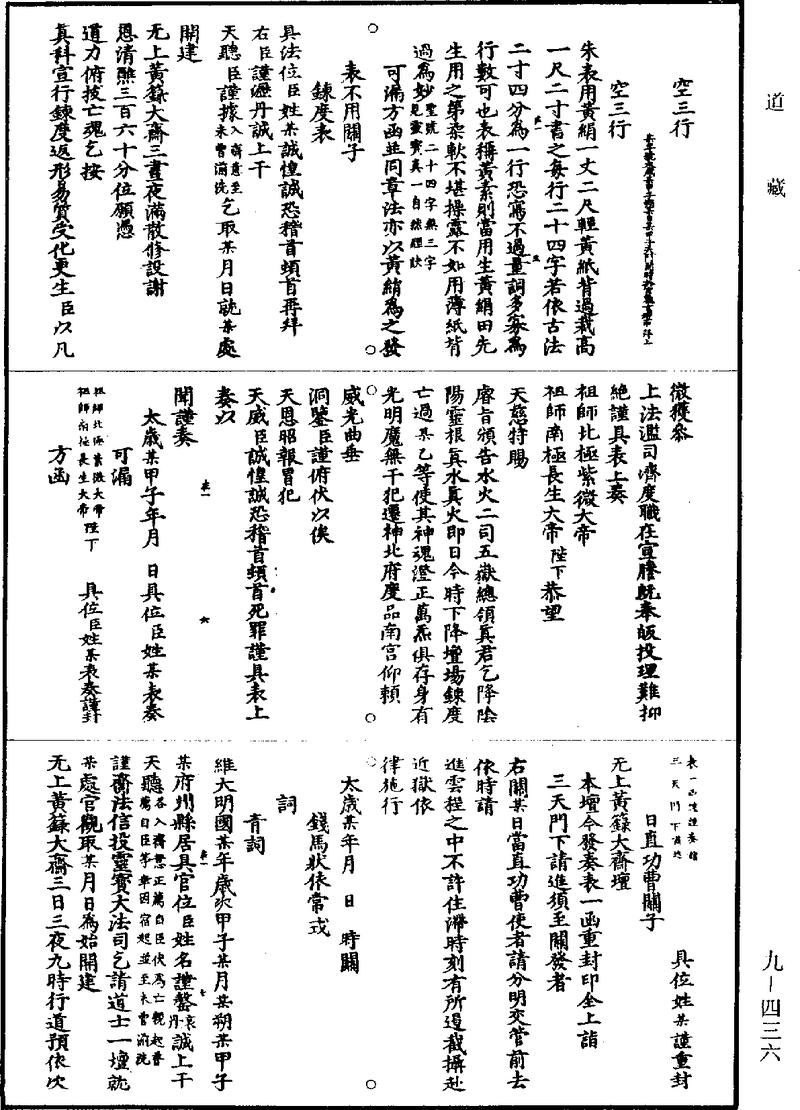 道藏
空三行
空三行
朱表用黃絹一丈二尺輕黃紙背過裁高
一尺二寸書之每行二十四字若依古法
二寸四分為一行恐寫不過量詞多寡為
行數可也表稱黃素則當用生黃絹田先
生用之第柔軟不堪操露不如用薄紙背
過為妙聖號二十四字無三字見靈寶真一自然經訣
可漏方函並同章法亦以黃絹為之發
表不用關子
鍊度表
具法位臣姓某誠惶誠恐稽首頓首再拜
右臣謹瀝丹誠上干
天聽臣謹據入齋意至未曾湔洗乞取某月日就某處
開建
无上黃籙大齋三晝夜滿散修設謝
恩清醮三百六十分位願憑
道力俯拔亡魂乞按
真科宣行鍊度返形易質受化更生臣以凡
微獲參
上法濫司濟度職在宣謄既奉皈投理難抑
絕謹具表上奏
祖師北極紫微大帝
祖師南極長生大帝陛下恭望
天慈特賜
睿旨頒告水火二司五嶽總領真君乞降陰
陽靈根真水真火即日今時下降壇場鍊度
亡過某乙等使其神魂澄正萬炁俱存身有
光明魔無干犯遷神北府度品南宮仰賴
威光曲垂
洞鑒臣謹俯伏以俟
天恩昭報冒犯
天威臣誠惶誠恐稽首頓首死罪謹具表上
奏以
聞謹奏
太歲某甲子年月 日具位臣姓某表奏
可漏
祖師北極紫微大帝
祖師南極長生大帝陛下 具位臣姓某表奏謹封
方函
表一函謹謹奏請
三天門下 具位姓某謹重封
日直功曹關子
无上黃籙大齋壇
本壇今發奏表一函重封印全上詣
三天門下請進須至關發者
右關某日當直功曹使者請分明交管前去
依時請
進雲程之中不許住滯時刻有所過截攝赴
近獄依
律施行
太歲某年月 日 時關
錢馬狀依常式
詞
青詞
維大明國某年歲次甲子某月某朔某甲子
某府州縣居具官位臣姓名謹罄哀丹誠上干
天聽
謹齋法信投靈寶大法司乞請道士一壇就
某處宮觀取某月日為始開建
无上黃籙大齋三日三夜九時行道預依次
九—四三六